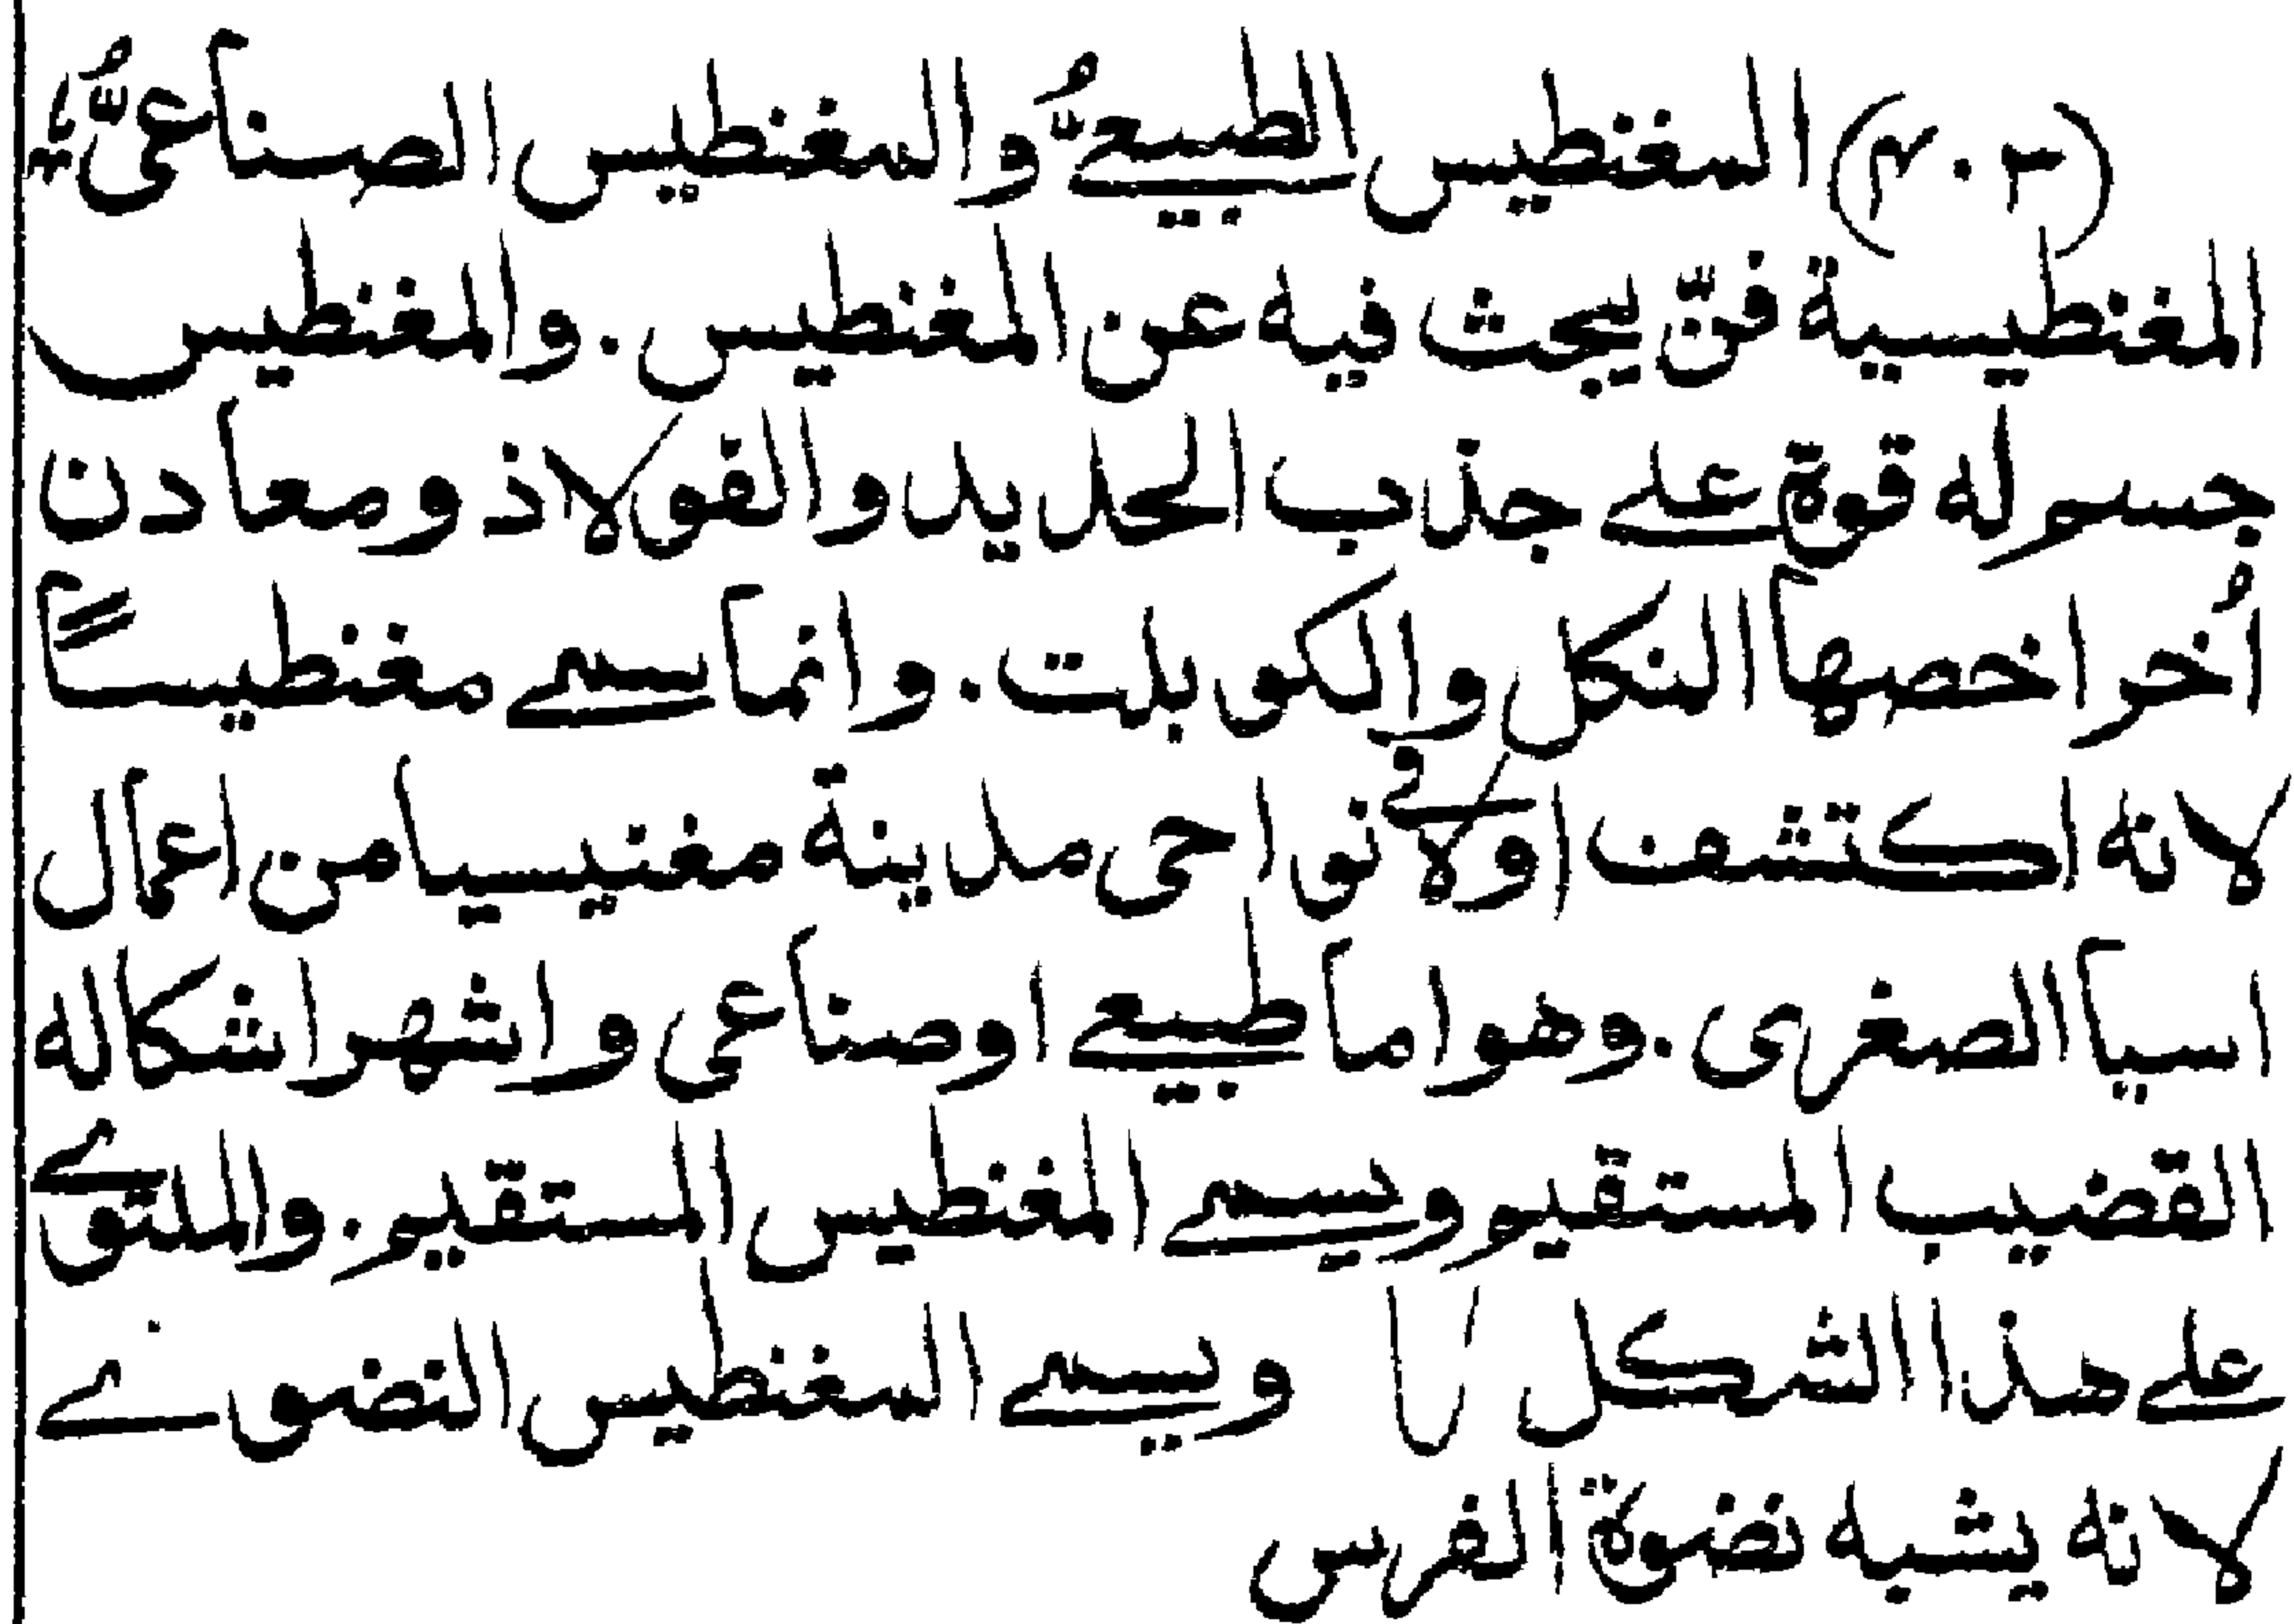 (٣٠٢) المغنطيس الطبيعيُّ والمغنطيس الصناعيُّ
المغنطيسية فنّ يبحث فيه عن المغنطيس . والمغنطيس
جسم له قوة على جذب الحديد والفولاذ ومعادن
أُخر اخصها النكل والكوبلت . وانما سمي مغنطيساً
لانه اكتشف اولا في نواحي مدينة مغنيسيا من اعمال
اسيا الصغرى . وهو اما طبيعي او صناعي واشهر اشكاله
القضيب المستقيم ويسمى المغنطيس المستقيم . والملتوي
على هذا الشكل U ويسمى المغنطيس النضوي
لانه يشبه نضوة الفرس